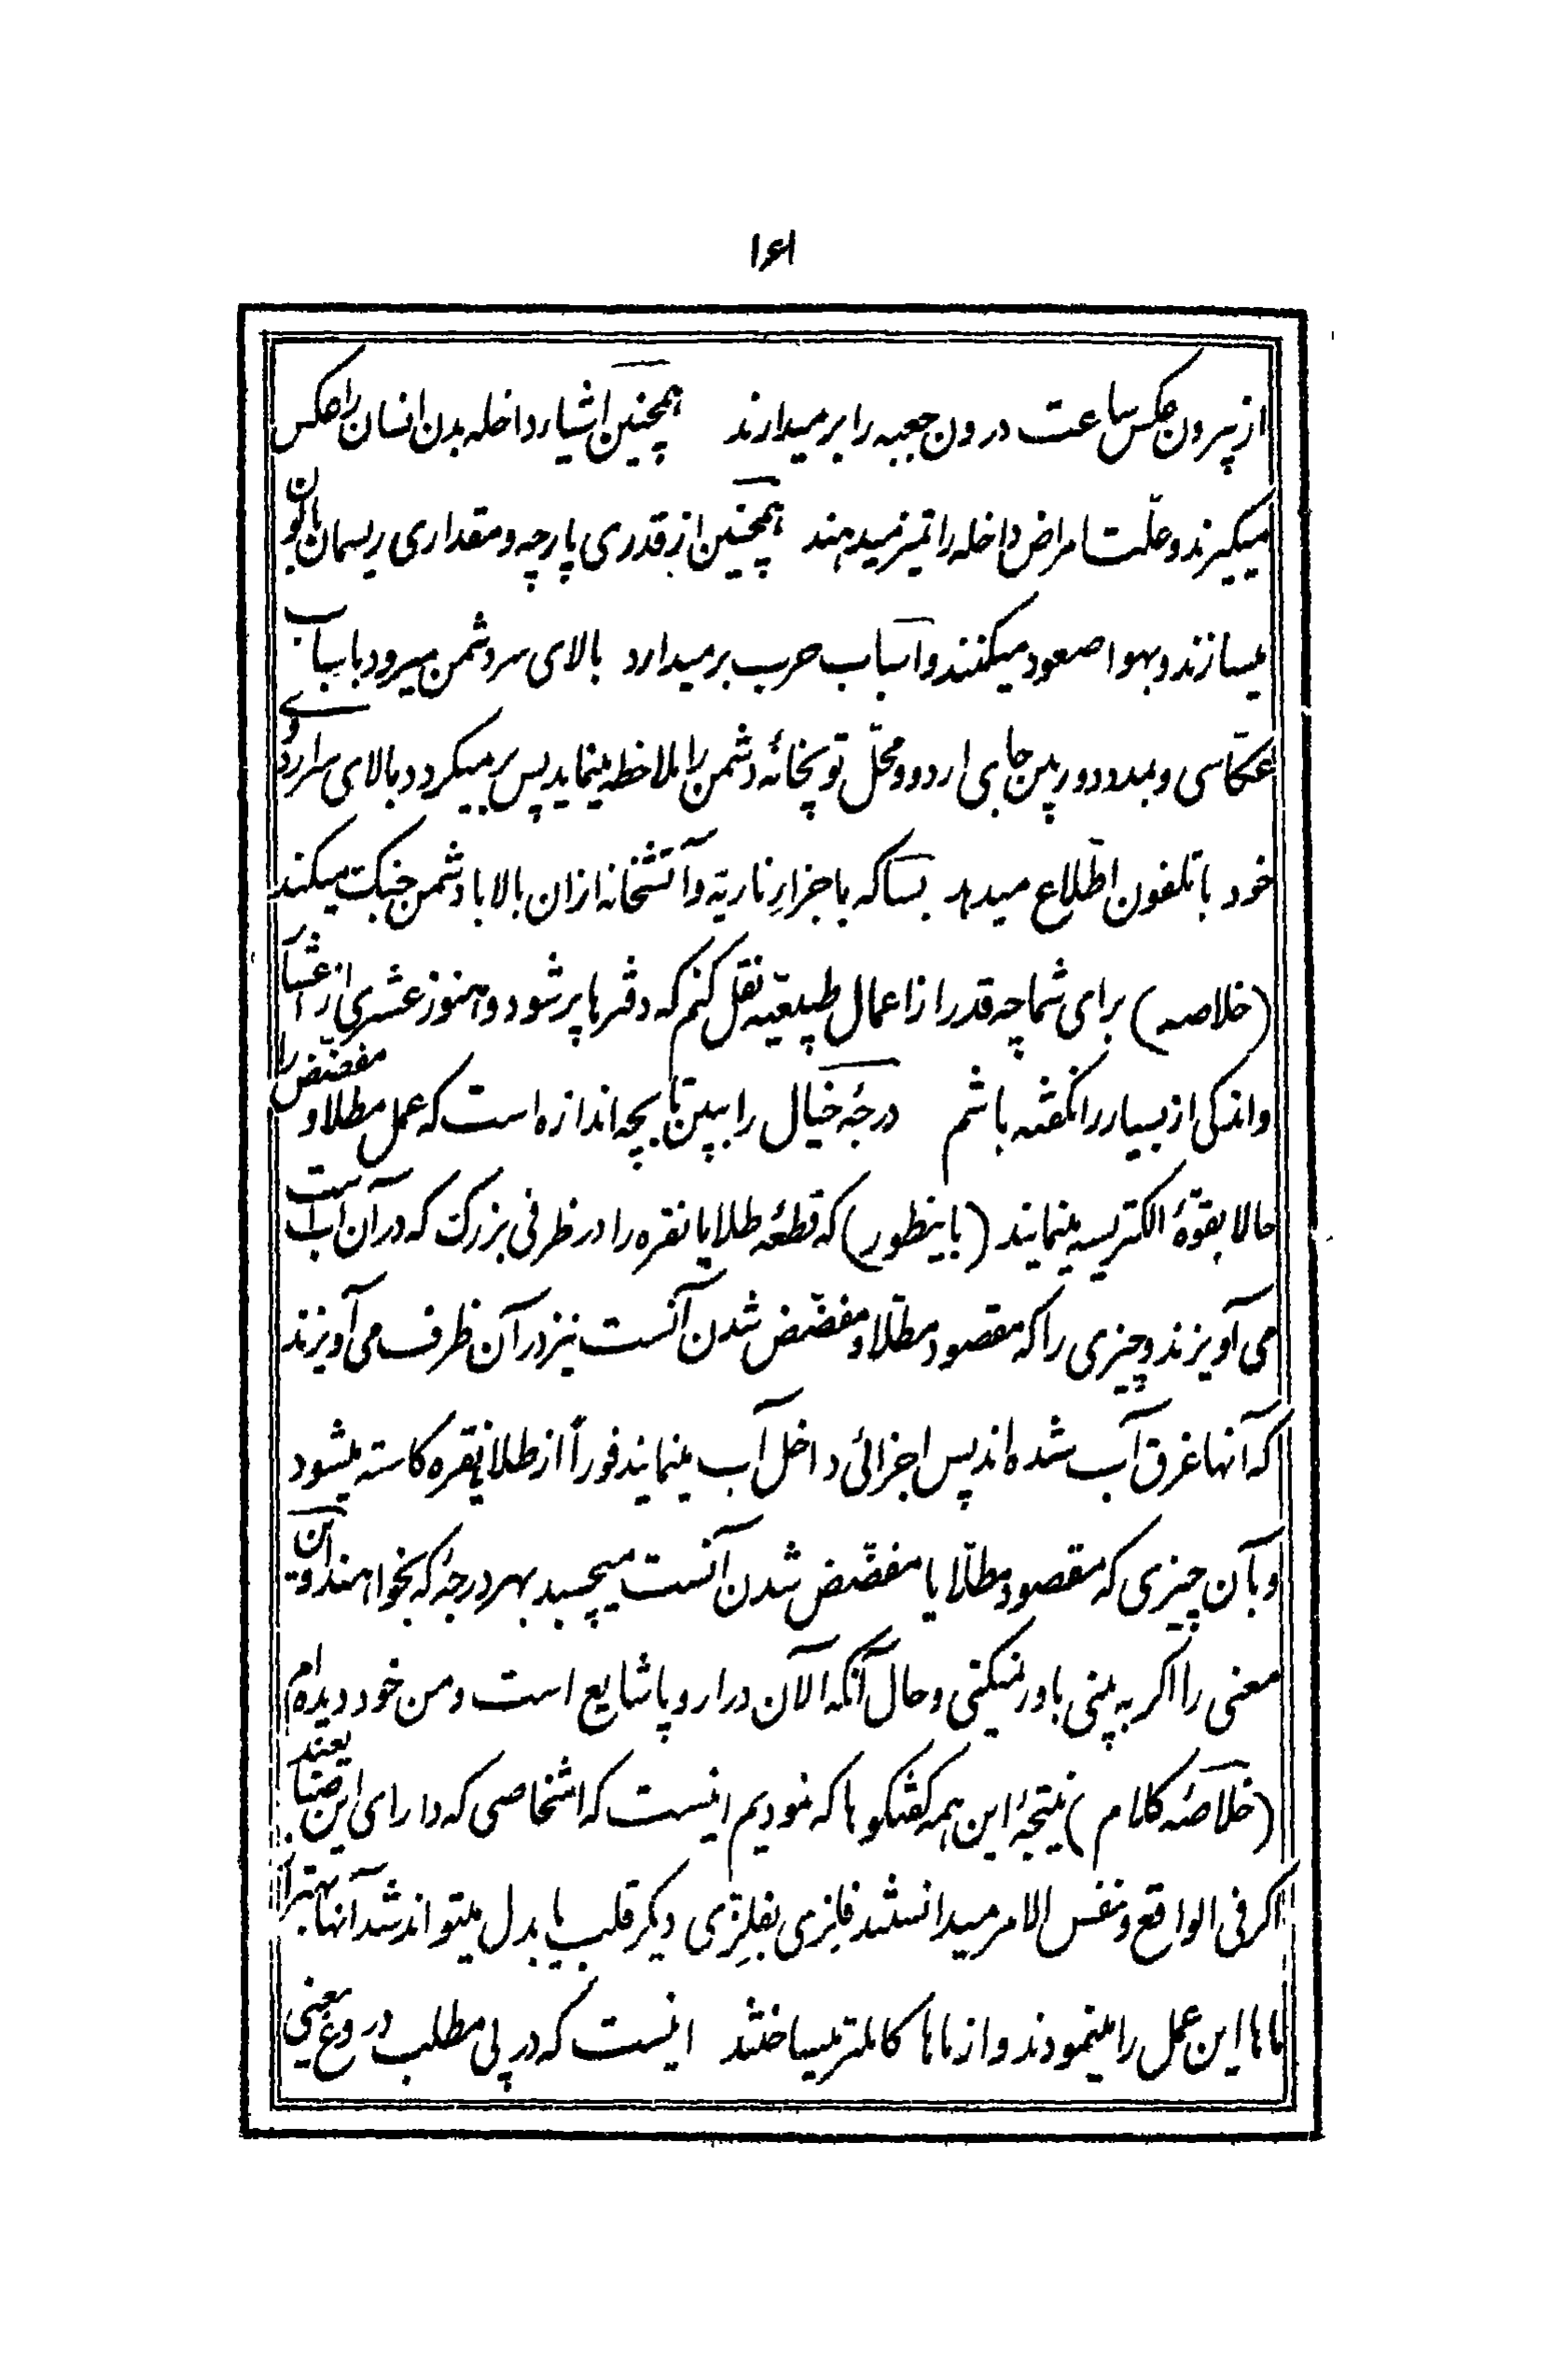 ١۶١
از بیرون عکس ساعت درون جعبه را برمیدارند همچنین اشیاء داخله بدن انسان را عکس
میکیرند و علّت امراض داخله را تمیز میدهند همچنین از قدری پارچه و مقداری ریسمان بالون
میسازند و بهوا صعود میکنند و اسباب حرب برمیدارد بالای سر دشمن میرود با اسباب
عکّاسی و بمدد دوربین جای اردو و محلّ توپخانهٔ دشمن را ملاحظه مینماید پس برمیکردد بالای سر اردوی
خود با تلفون اطّلاع میدهد بساکه با جزاء ناریّه و آتشخانه ازان بالا با دشمن جنک میکند
(خلاصه) برای شما چه قدر از اعمال طبیعیّه نقل کنم که دفترها پر شود و هنوز عشری از اعشار
و اندکی از بسیار را نکفته باشم درجهٔ خیال را ببین تا بچه اندازه است که عمل مطلا و مفضّض را
حالا بقوّهٔ الکتریسیه مینمایند (باینطور) که قطعهٔ طلا یا نقره را در ظرفی بزرک که در آن آب است
می آویزند و چیزی را که مقصود مطلّا و مفضّض شدن آنست نیز در آن ظرف می آویزند
که آنها غرق آب شده اند پس اجزائی داخل آب مینمایند فوراً از طلا یا نقره کاسته میشود
و بآن چیزی که مقصود مطلّا یا مفضّض شدن آنست میچسبد بهر درجهٔ که بخواهند و این
معنی را اکر به بینی باور نمیکنی و حال آنکه الآن در اروپا شایع است و من خود دیده ام
(خلاصهٔ کلام) نتیجهٔ این همه کفتکوها که نمودیم اینست که اشخاصی که دارای این صنایعند
اکر فی الواقع و نفس الامر میدانستند فلزی بفلزّی دیکر قلب یا بدل میتواند شد آنها بهتر از
ماها این عمل را مینمودند و از ماها کاملتر میساختند اینست که در پی مطلب دروغ یعنی